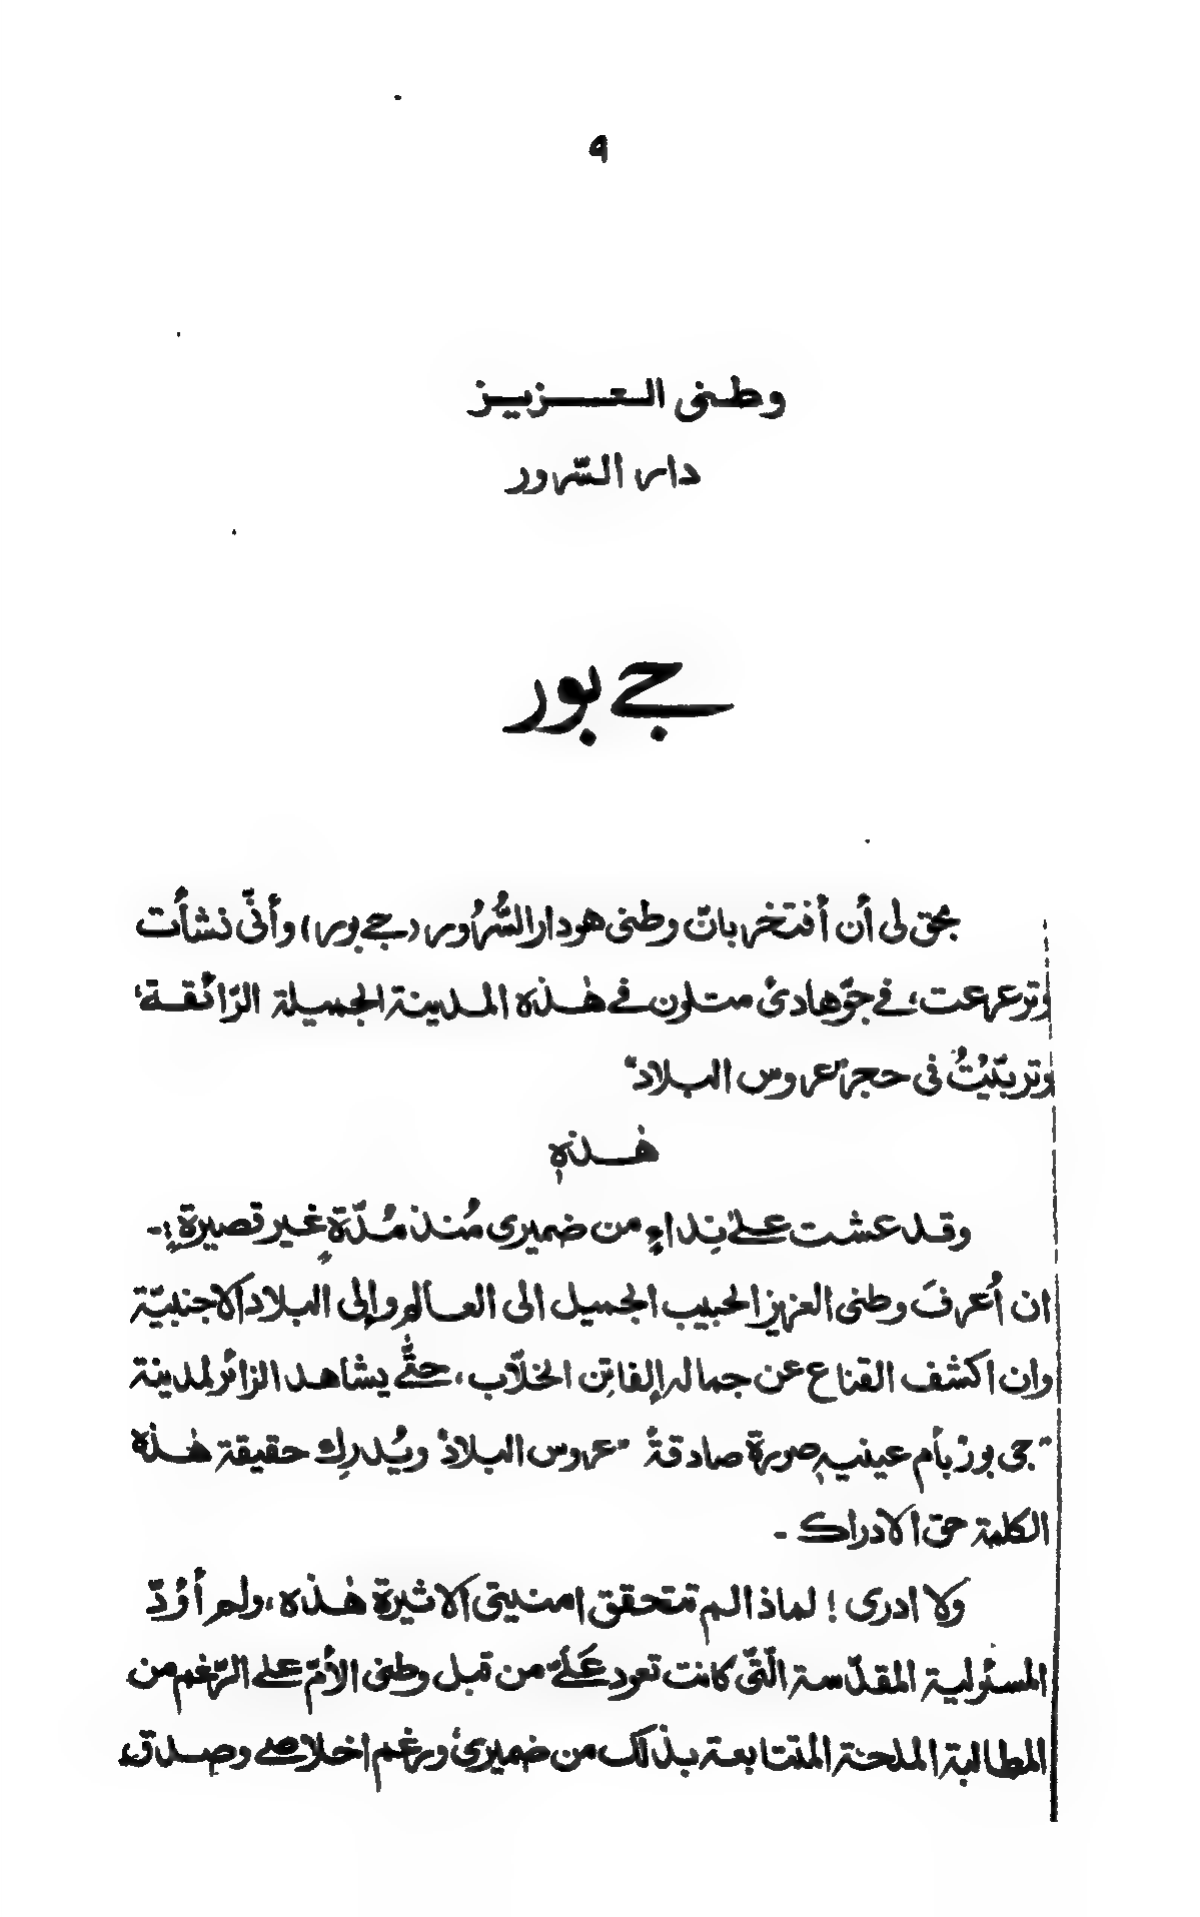 ٩
وطنى العزيز
دار السّرور
جے بور
يحق لى أن أفتخر بانّ وطنى هو دار السُّرُور (جے بور) وأنّى نشأت
وترعرعت؛ فے جوّ هادئ متلون فے هٰذه المدينة الجميلة الرّائقة،
وتربّيْتُ فى حجر "عروس البلاد"
هٰذهٖ
وقد عشت علىٰ نِداءٍ من ضميرى مُنذ مُدّةٍ غير قصيرةٍ:-
ان أُعرفَ وطنى العزيز الحبيب الجميل الى العالم وإلى البلاد الاجنبيّة
وان اكشف القناع عن جمالهِ الفاتِن الخلاّب، حتّٰى يشاهد الزائر لمدينة
"جى بور" بأم عينيهِ صورة صادقةً "عروس البلاد" ويُدرِك حقيقة هٰذه
الكلمة حق الادراك -
ولا ادرى! لماذا لم تتحقق امنيتى الاثيرة هٰذه، ولم أؤدّ
المسئولية المقدّسة الّتى كانت تعود عَلىّ من قبل وطنى الأمّ على الرّغم من
المطالبة الملحة المتتابعة بذلك من ضميرى ورغم اخلاصى وصدق